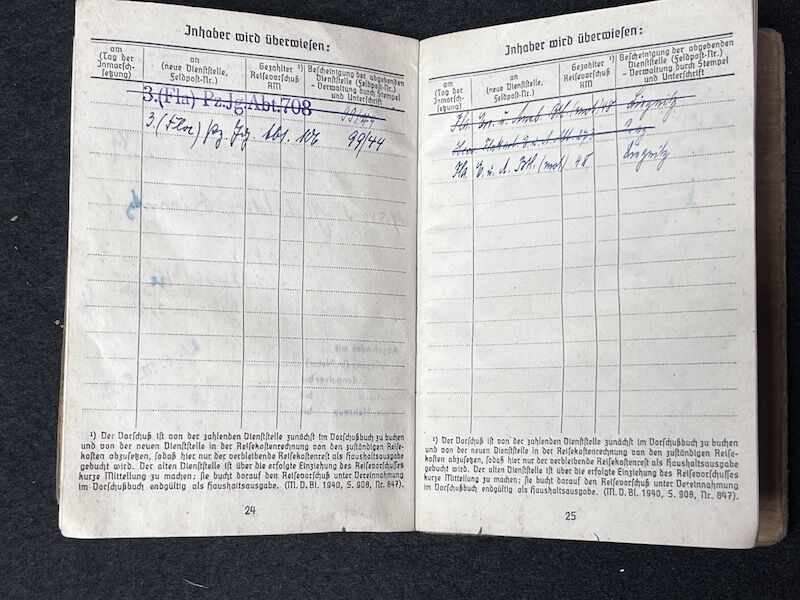 Inhaber wird überwiesen:
am
(Tag der
Inmarsch-
setzung)
an
(neue Dienststelle,
Feldpost-Nr.)
Gezahlter ¹)
Reisevorschuß
RM
Bescheinigung der abgebenden
Dienststelle (Feldpost-Nr.)
- Verwaltung durch Stempel
und Unterschrift
3.(Fla) Pz.Jg.Abt.708 99/44
3. (Fla) Pz. Jg. Abt. 106 99/44
¹) Der Vorschuß ist von der zahlenden Dienststelle zunächst im Vorschußbuch zu buchen
und von der neuen Dienststelle in der Reisekostenrechnung von den zuständigen Reise-
kosten abzusetzen, sodaß hier nur der verbleibende Reisekostenrest als Haushaltsausgabe
gebucht wird. Der alten Dienststelle ist über die erfolgte Einziehung des Reisevorschusses
kurze Mitteilung zu machen; sie bucht darauf den Reisevorschuß unter Vereinnahmung
im Vorschußbuch endgültig als Haushaltsausgabe. (M. V. Bl. 1940, S. 908, Nr. 847).
24
Inhaber wird überwiesen:
am
(Tag der
Inmarsch-
setzung)
an
(neue Dienststelle,
Feldpost-Nr.)
Gezahlter ¹)
Reisevorschuß
RM
Bescheinigung der abgebenden
Dienststelle (Feldpost-Nr.)
- Verwaltung durch Stempel
und Unterschrift
Fla. Ers. u. Ausb. Btl. (mot) 48 Liegnitz
Fla. E. u. A. Btl. (mot) 48 Liegnitz
¹) Der Vorschuß ist von der zahlenden Dienststelle zunächst im Vorschußbuch zu buchen
und von der neuen Dienststelle in der Reisekostenrechnung von den zuständigen Reise-
kosten abzusetzen, sodaß hier nur der verbleibende Reisekostenrest als Haushaltsausgabe
gebucht wird. Der alten Dienststelle ist über die erfolgte Einziehung des Reisevorschusses
kurze Mitteilung zu machen; sie bucht darauf den Reisevorschuß unter Vereinnahmung
im Vorschußbuch endgültig als Haushaltsausgabe. (M. V. Bl. 1940, S. 908, Nr. 847).
25